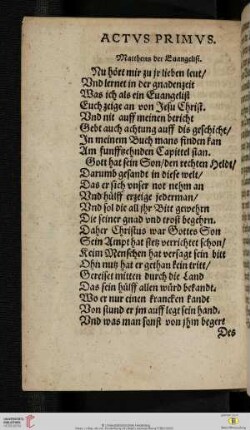 ACTVS PRIMVS.
Mattheus der Euangelist.
Nu hört mir zu jr lieben leut/
Vnd lernet in der gnadenzeit
Was ich als ein Euangelist
Euch zeige an von Jesu Christ.
Vnd nit auff meinen bericht
Gebt auch achtung auff dis geschicht/
In meinem Buch mans finden kan
Am funffzehnden Capittel stan.
Gott hat sein Son/den rechten Heldt/
Darumb gesandt in diese welt/
Das er sich vnser not nehm an
Vnd hülff erzeige jederman/
Vnd sol die all jhr Bitt gewehrn
Die seiner gnad vnd trost begehrn.
Daher Christus war Gottes Son
Sein Ampt hat stetz verrichtet schon/
Keim Menschen hat versagt sein bitt
Ohn nutz hat er gethan kein tritt/
Gereiset mitten durch die Land
Das sein hülff allen würd bekandt.
Wo er nur einen krancken fandt
Von stund er jm auff legt sein hand.
Vnd was man sonst von jhm begert
Des